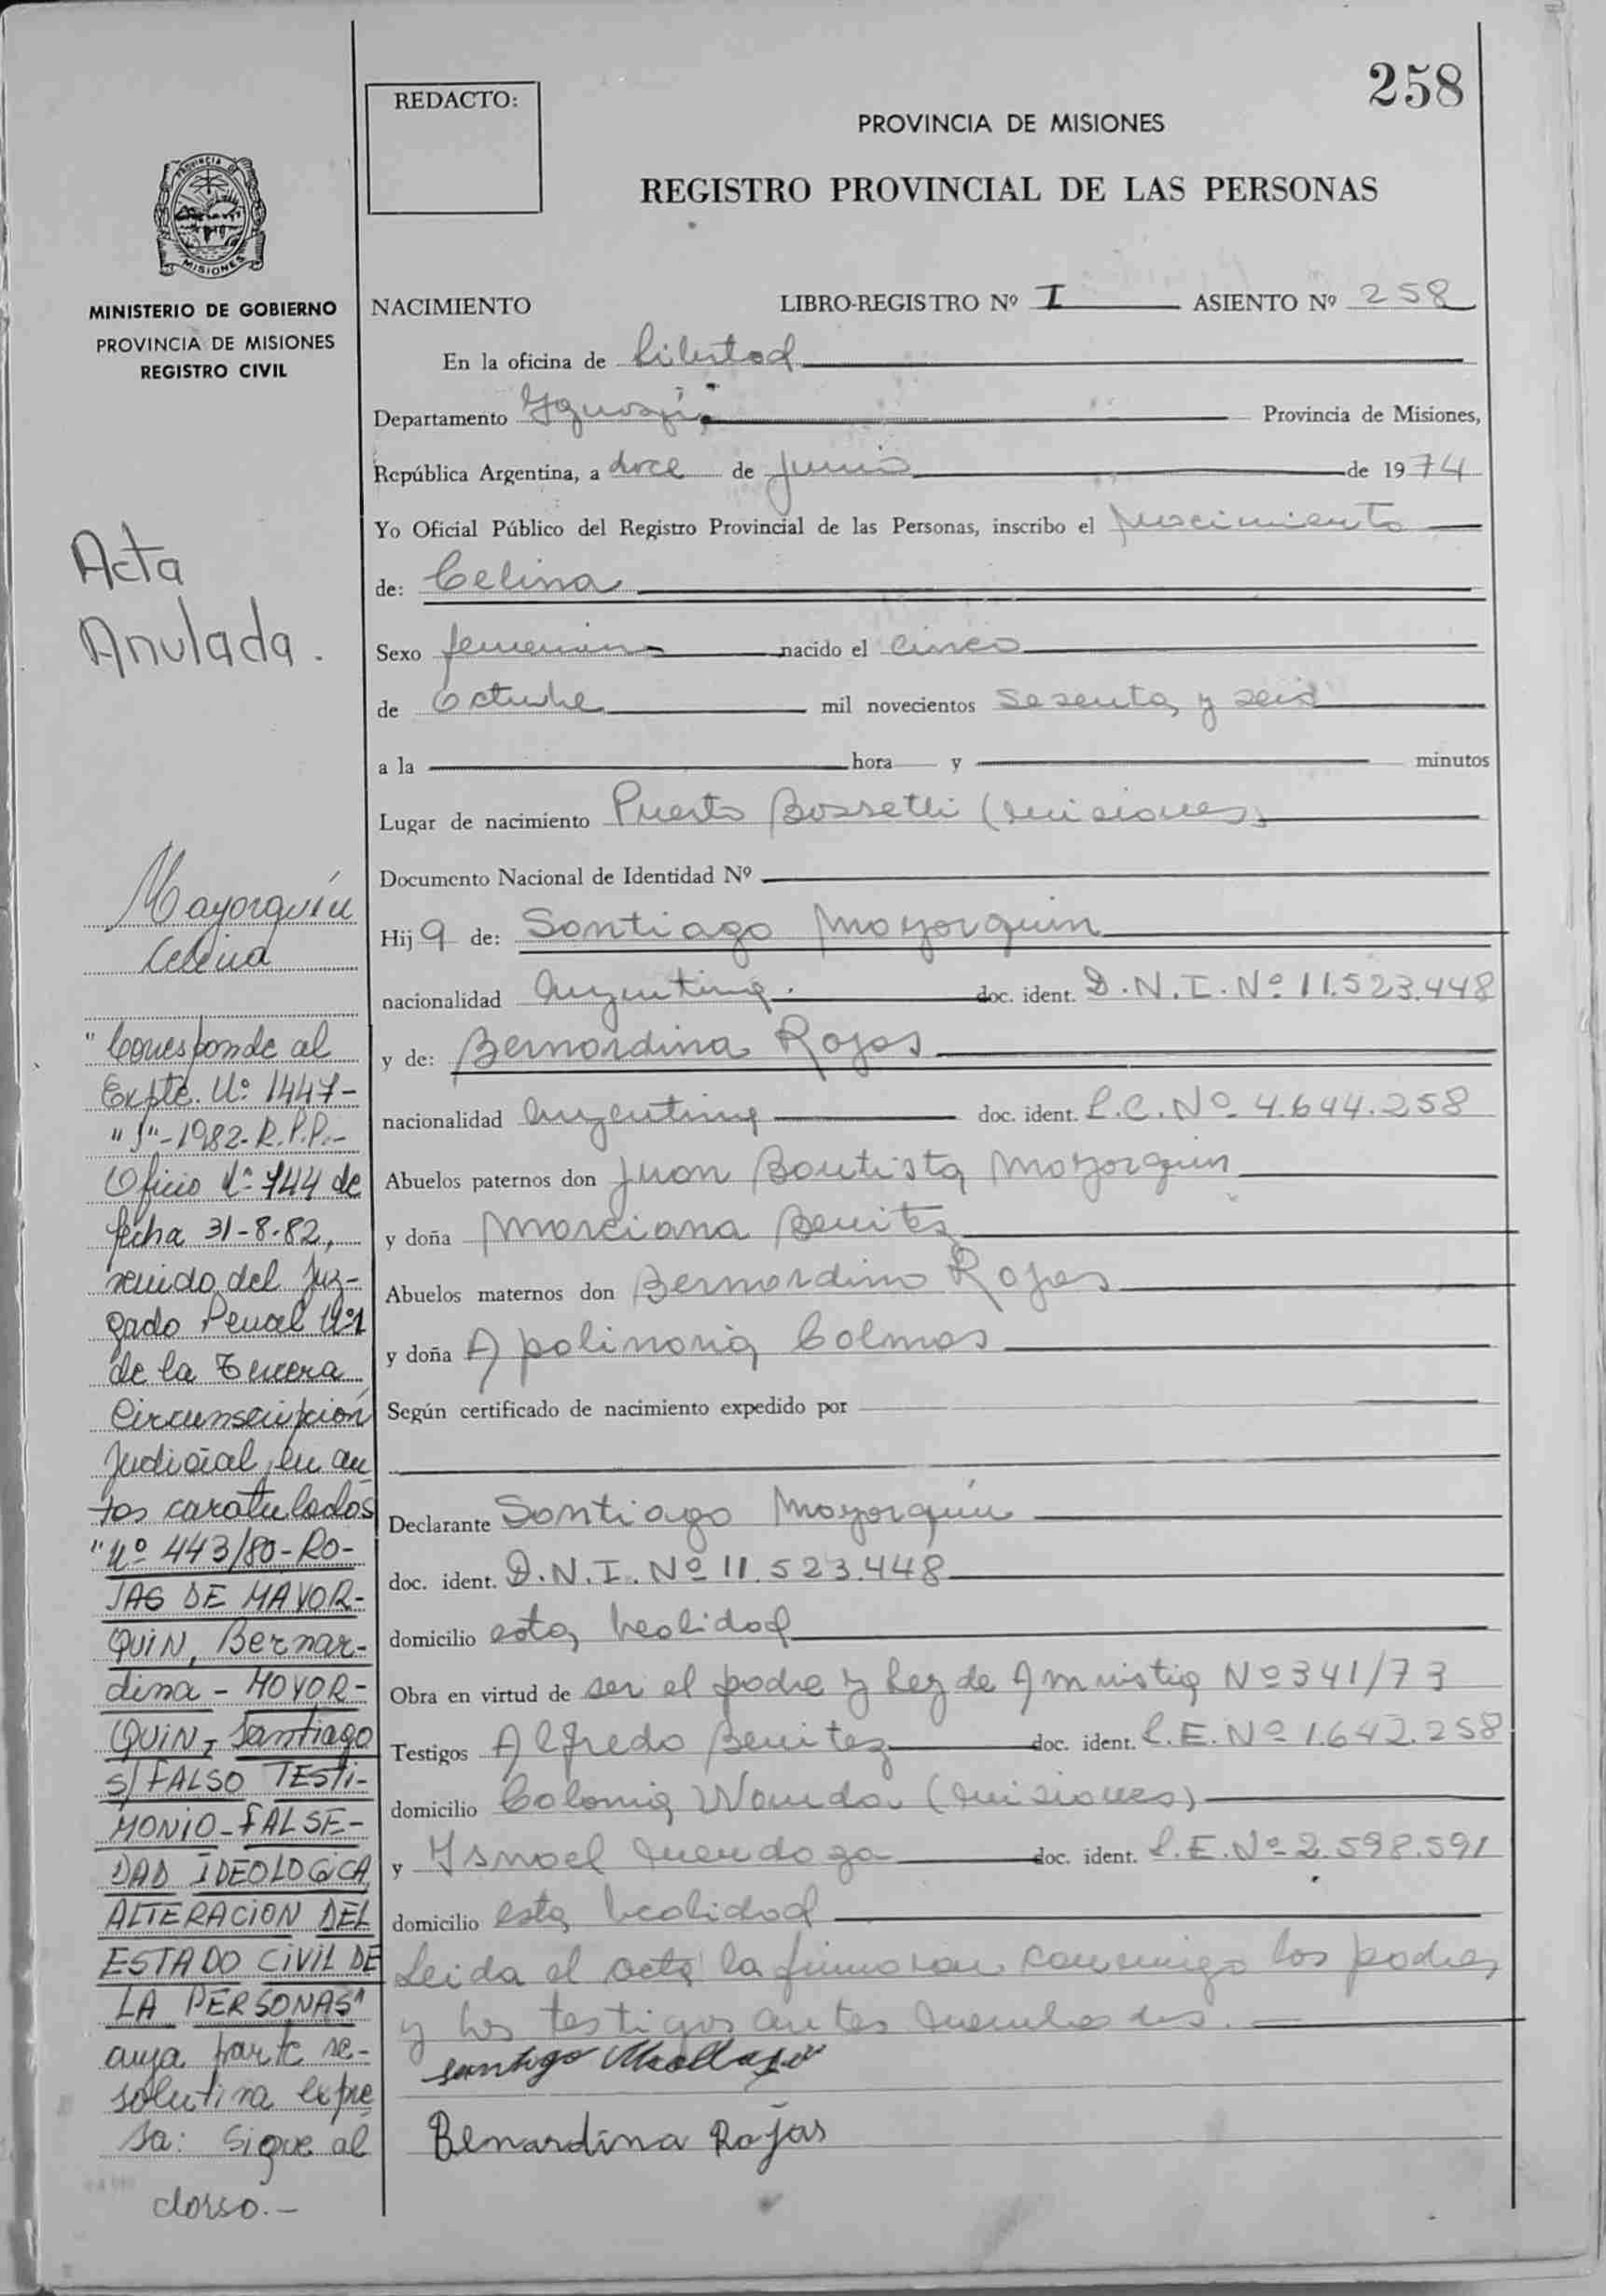 258
REDACTO:
PROVINCIA DE MISIONES
REGISTRO PROVINCIAL DE LAS PERSONAS
PROVINCIA DE
MISIONES
MINISTERIO DE GOBIERNO
PROVINCIA DE MISIONES
REGISTRO CIVIL
NACIMIENTO LIBRO-REGISTRO Nº I ASIENTO Nº 258
En la oficina de Libertad
Departamento Yguazú Provincia de Misiones,
República Argentina, a doce de Junio de 1974
Yo Oficial Público del Registro Provincial de las Personas, inscribo el nacimiento
de: Celina
Sexo femenino nacido el cinco
de Octubre mil novecientos sesenta y seis
a la hora y minutos
Lugar de nacimiento Puerto Bossetti (Misiones)
Documento Nacional de Identidad Nº
Hija de: Santiago Mayorquin
nacionalidad Argentina. doc. ident. D.N.I. Nº 11.523.448
y de: Bernardina Rojas
nacionalidad Argentina doc. ident. L.C. Nº 4.644.258
Abuelos paternos don Juan Bautista Mayorquin
y doña Marciana Benitez
Abuelos maternos don Bernardino Rojas
y doña Apolinaria Colmas
Según certificado de nacimiento expedido por
Declarante Santiago Mayorquín
doc. ident. D.N.I. Nº 11.523.448
domicilio esta localidad
Obra en virtud de ser el padre y Ley de Amnistia Nº 341/73
Testigos Alfredo Benitez doc. ident. L.E. Nº 1.642.258
domicilio Colonia Wanda (Misiones)
y Ismael Mendoza doc. ident. L.E. Nº 2.598.591
domicilio esta localidad
Leida el acta la firmaron conmigo los padres
y los testigos antes nombrados.
Santigo
Benardina Rojas
Acta
Anulada.
Mayorquín
Celina
"Corresponde al
Expte. Nº 1447-
"J"-1982-R.P.P.-
Oficio Nº 744 de
fecha 31-8-82,
venido del Juz-
gado Penal Nº1
de la Tercera
Circunscripción
Judicial, en au
tos caratulados
"Nº 443/80-RO-
JAS DE MAYOR-
QUIN, Bernar-
dina - MOYOR-
QUIN, Santiago
S/FALSO TESTI-
MONIO-FALSE-
DAD IDEOLOGICA,
ALTERACION DEL
ESTADO CIVIL DE
LA PERSONAS"
cuya parte re-
solutiva expre
sa: Sigue al
dorso.-